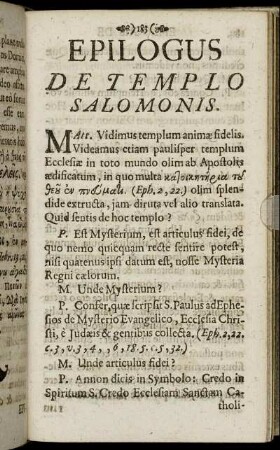 185
EPILOGUS
DE TEMPLO
SALOMONIS.
MAit. Vidimus templum animæ fidelis.
Videamus etiam paulisper templum
Ecclesiæ in toto mundo olim ab Apostolis
ædificatum, in quo multa κατοικητήρια τȣ͂
Θεȣ͂ ἐν πνεύματι. (Eph. 2, 22.) olim splen-
dide extructa, jam diruta vel alio translata.
Quid sentis de hoc templo?
P. Est Mysterium, est articulus fidei, de
quo nemo quicquam recte sentire potest,
nisi quatenus ipsi datum est, nosse Mysteria
Regni cælorum.
M. Unde Mysterium?
P. Confer, quæ scripsit S. Paulus ad Ephe-
sios de Mysterio Evangelico, Ecclesia Chri-
sti, è Judæis & gentibus collecta. (Eph. 2, 22.
c. 3, v. 3, 4, , 6, 18. 5. c. 5, 32.)
M. Unde articulus fidei?
P. Annon dicis in Symbolo: Credo in
Spiritum S. Credo Ecclesiam Sanctam Ca-
tholi-